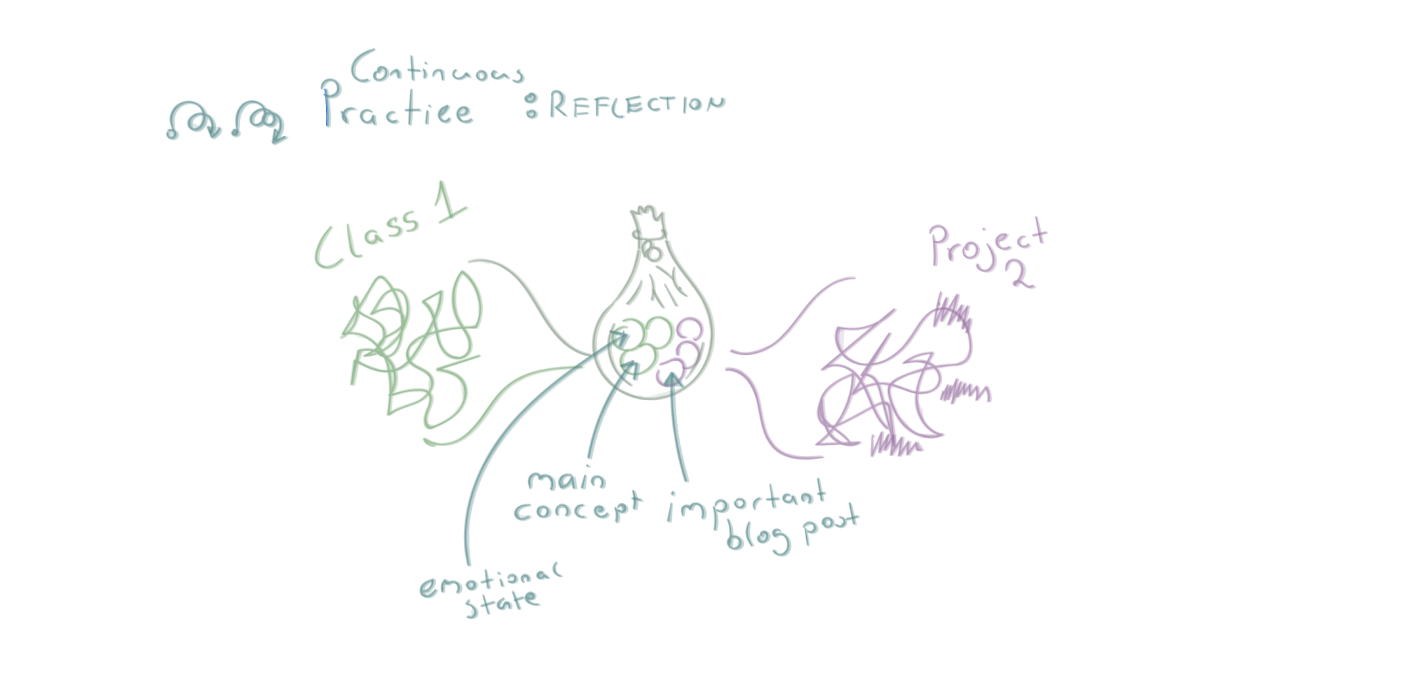 Continuous
Practice : REFLECTION
Class 1
Project
2
main
concept
important
blog post
emotional
state